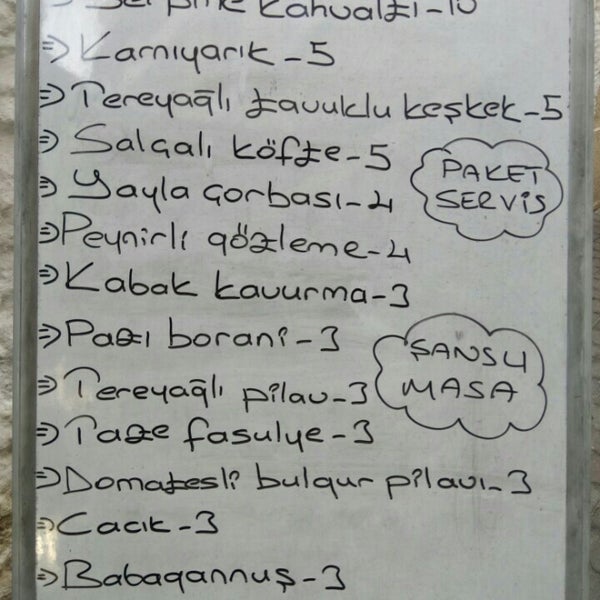 ⇒ Serpme kahvaltı-10
⇒ Karnıyarık-5
⇒ Tereyağlı tavuklu keşkek-5
⇒ Salçalı köfte-5
⇒ Yayla çorbası-4
⇒ Peynirli gözleme-4
⇒ Kabak kavurma-3
⇒ Pazı borani-3
⇒ Tereyağlı pilav-3
⇒ Taze fasulye-3
⇒ Domatesli bulgur pilavı-3
⇒ Cacık-3
⇒ Babagannuş-3
PAKET
SERVİS
ŞANSLI
MASA